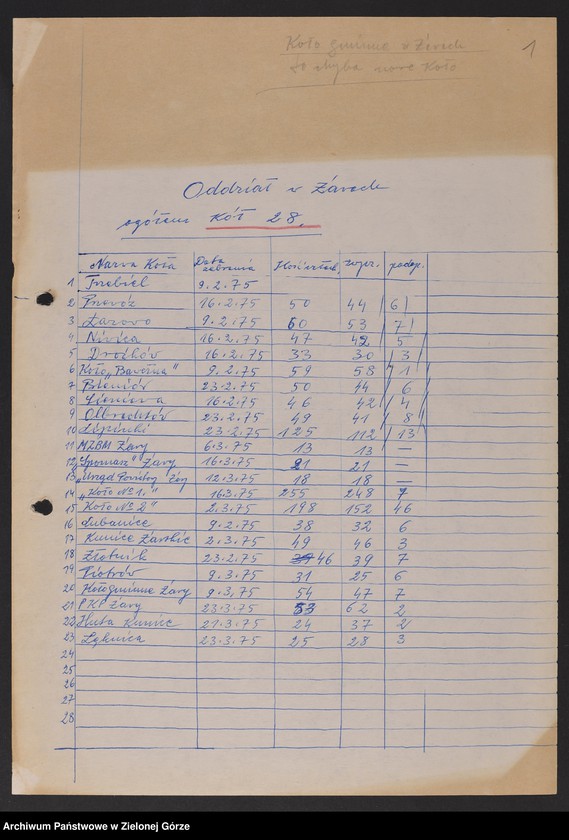 Koło gminne w Żarach
to chyba nowe Koło
1
Oddział w Żarach
ogółem Kół 28.
Nazwa Koła Data zebrania Ilość członk. zwycz. podop.
1 Trzebiel 9.2.75
2 Przewóz 16.2.75 50 44 6
3 Łazowo 9.2.75 60 53 7
4 Niwica 16.2.75 47 42 5
5 Drożków 16.2.75 33 30 3
6 Koło „Bawełna” 9.2.75 59 58 1
7 Bieniów 23.2.75 50 44 6
8 Sieniawa 16.2.75 46 42 4
9 Olbrachtów 23.2.75 49 41 8
10 Lipinki 23.2.75 125 112 13
11 MZBM Żary 6.3.75 13 13 —
12 „Spomasz” Żary 16.3.75 21 21 —
13 „Urząd Powiatowy” Żary 12.3.75 18 18 —
14 „Koło No 1.” 16.3.75 255 248 7
15 Koło No 2” 2.3.75 198 152 46
16 Lubanice 9.2.75 38 32 6
17 Kunice Żarskie 2.3.75 49 46 3
18 Złotnik 23.2.75 39 46 39 7
19 Piotrów 9.3.75 31 25 6
20 Koło gminne Żary 9.3.75 54 47 7
21 PKP Żary 23.3.75 53 62 2
22 Huta Kunice 21.3.75 24 37 2
23 Łęknica 23.3.75 25 28 3
24
25
26
27
28
Archiwum Państwowe w Zielonej Górze